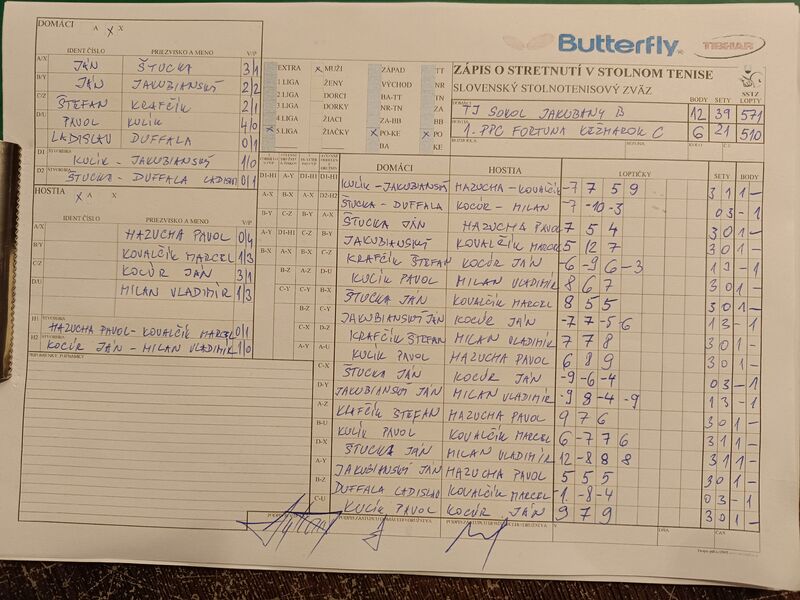 DOMÁCI
A X X
IDENT ČÍSLO PRIEZVISKO A MENO V/P
A/X JÁN ŠTUCKA 3/1
B/Y JÁN JAKUBIANSKÝ 2/2
C/Z ŠTEFAN KRAFČÍK 2/1
D/U PAVOL KULÍK 4/0
LADISLAV DUFFALA 0/1
D1 KULÍK - JAKUBIANSKÝ 1/0
D2 ŠTUCKA - DUFFALA LADISLAV 0/1
HOSTIA
X A X
IDENT ČÍSLO PRIEZVISKO A MENO V/P
A/X HAZUCHA PAVOL 0/4
B/Y KOVALČÍK MARCEL 1/3
C/Z KOCÚR JÁN 3/1
D/U MILAN VLADIMÍR 1/3
H1 HAZUCHA PAVOL - KOVALČÍK MARCEL 0/1
H2 KOCÚR JÁN - MILAN VLADIMÍR 1/0
PRIPOMIENKY, POZNÁMKY
Butterfly TIBHAR
EXTRA X MUŽI ZÁPAD TT
1 LIGA ŽENY VÝCHOD NR
2 LIGA DORCI BA-TT TN
3 LIGA DORKY NR-TN ZA
4 LIGA ŽIACI ZA-BB BB
X 5.LIGA ŽIAČKY X PO-KE X PO
BA KE
ZÁPIS O STRETNUTÍ V STOLNOM TENISE
SLOVENSKÝ STOLNOTENISOVÝ ZVÄZ
SSTZ
BODY SETY LOPTY
DOMÁCI TJ SOKOL JAKUBANY B 12 39 571
HOSTIA 1. PPC FORTUNA KEŽMAROK C 6 21 510
DOMÁCI HOSTIA LOPTIČKY SETY BODY
KULÍK - JAKUBIANSKÝ HAZUCHA - KOVALČÍK -7 7 5 9 3 1 1 -
ŠTUCKA - DUFFALA KOCÚR - MILAN -7 -10 -3 0 3 - 1
ŠTUCKA JÁN HAZUCHA PAVOL 7 5 4 3 0 1 -
JAKUBIANSKÝ KOVALČÍK MARCEL 5 12 7 3 0 1 -
KRAFČÍK ŠTEFAN KOCÚR JÁN -6 -9 6 -3 1 3 - 1
KULÍK PAVOL MILAN VLADIMÍR 8 6 7 3 0 1 -
ŠTUCKA JÁN KOVALČÍK MARCEL 8 5 5 3 0 1 -
JAKUBIANSKÝ JÁN KOCÚR JÁN -7 7 -5 -6 1 3 - 1
KRAFČÍK ŠTEFAN MILAN VLADIMÍR 7 7 8 3 0 1 -
KULÍK PAVOL HAZUCHA PAVOL 6 8 9 3 0 1 -
ŠTUCKA JÁN KOCÚR JÁN -9 -6 -4 0 3 - 1
JAKUBIANSKÝ JÁN MILAN VLADIMÍR -9 8 -4 -9 1 3 - 1
KRAFČÍK ŠTEFAN HAZUCHA PAVOL 9 7 6 3 0 1 -
KULÍK PAVOL KOVALČÍK MARCEL 6 -7 7 6 3 1 1 -
ŠTUCKA JÁN MILAN VLADIMÍR 12 -8 8 8 3 1 1 -
JAKUBIANSKÝ JÁN HAZUCHA PAVOL 5 5 5 3 0 1 -
DUFFALA LADISLAV KOVALČÍK MARCEL -1 -8 -4 0 3 - 1
KULÍK PAVOL KOCÚR JÁN 9 7 9 3 0 1 -
V DŇA ČAS